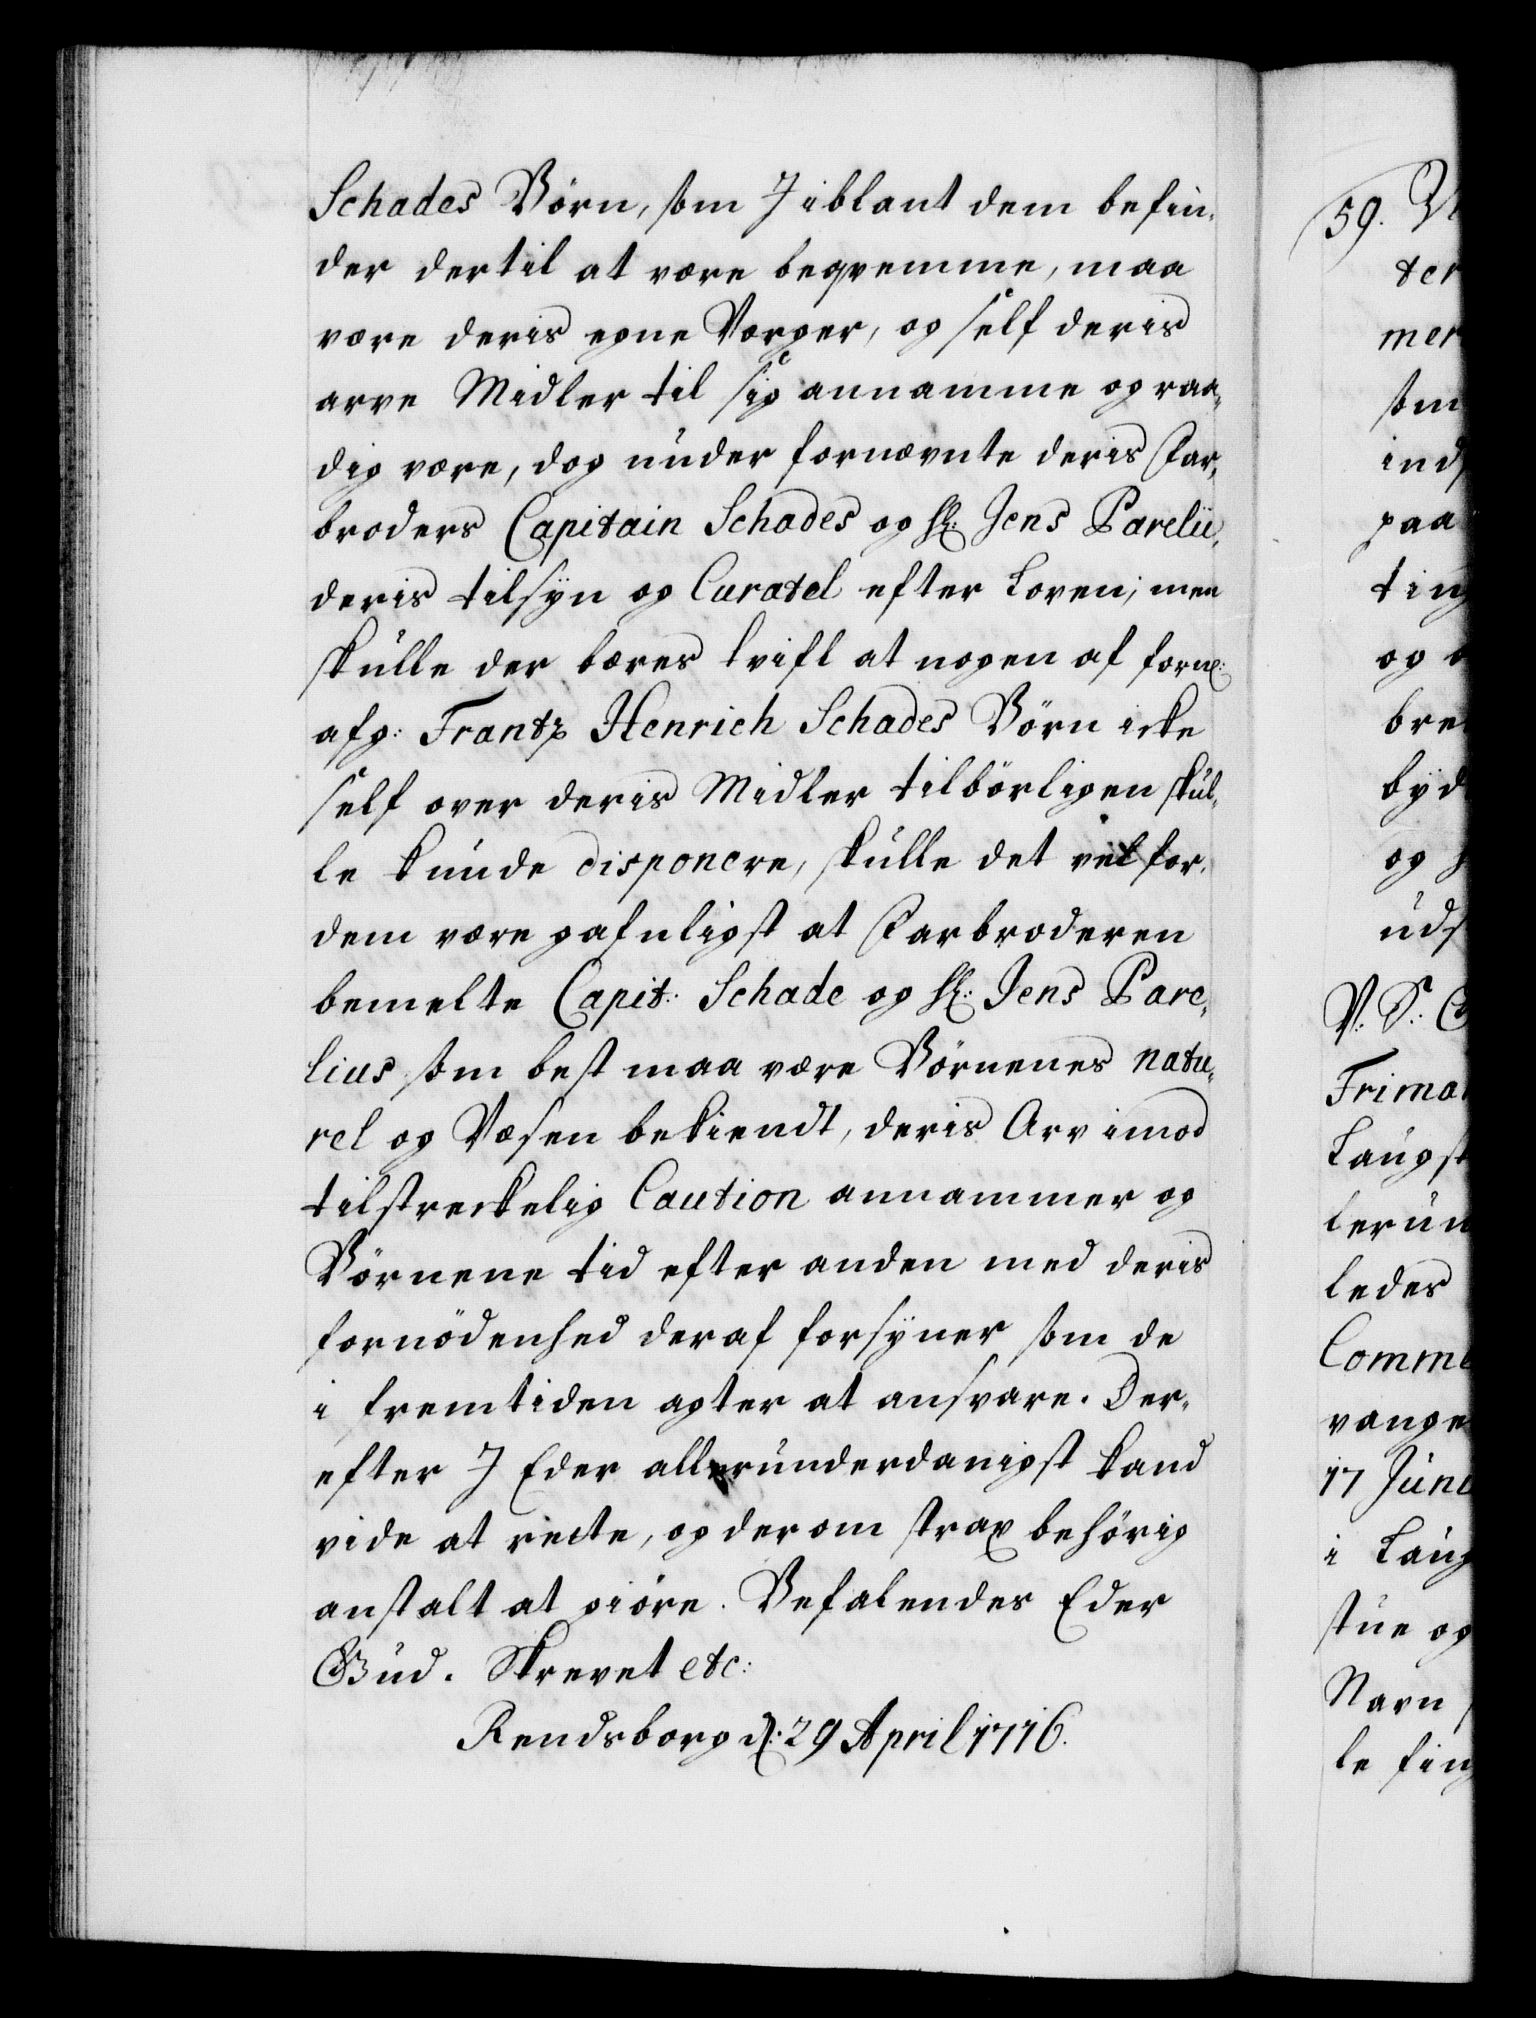 Schades Börn, som I iblant dem befin,
der dertil at være beqvemme, maa
være deris egne Værger, og self deris
arve Midler til sig annamme og raa,
dig være, dog under fornævnte deris Far,
broders Capitain Schades og hl: Jens Parelii,
deris tilsyn og Curatel efter Loven; men
skulle der bæres tvifl at nogen af forn:
afg: Frantz Henrich Schades Börn icke
self over deris Midler tilbörligen skul,
le kunde disponere, skulle det vel for,
dem være gafnligst at Farbroderen
bemelte Capit: Schade og hl: Jens Pare,
lius som best maa være Börnenes natu,
rel og Væsen bekiendt, deris Arv imod
tilstreckelig Caution annammer og
Börnene tid efter anden med deris
fornödenhed deraf forsÿner som de
i fremtiden agter at ansvare. Der,
efter I Eder allerunderdanigst kand
vide at recte, og derom strax behörig
anstalt at giöre. Befalendes Eder
Gud. Skrevet etc:
Rendsborg d: 29 April 1716.
59.
ter
mer
som
ind
paa
ting
og
bre
byd
og
uds
V. S:
Frima
Laugst
lerun
ledes
Comme
vange
17 June
i Laug
stue og
Navn
le fing